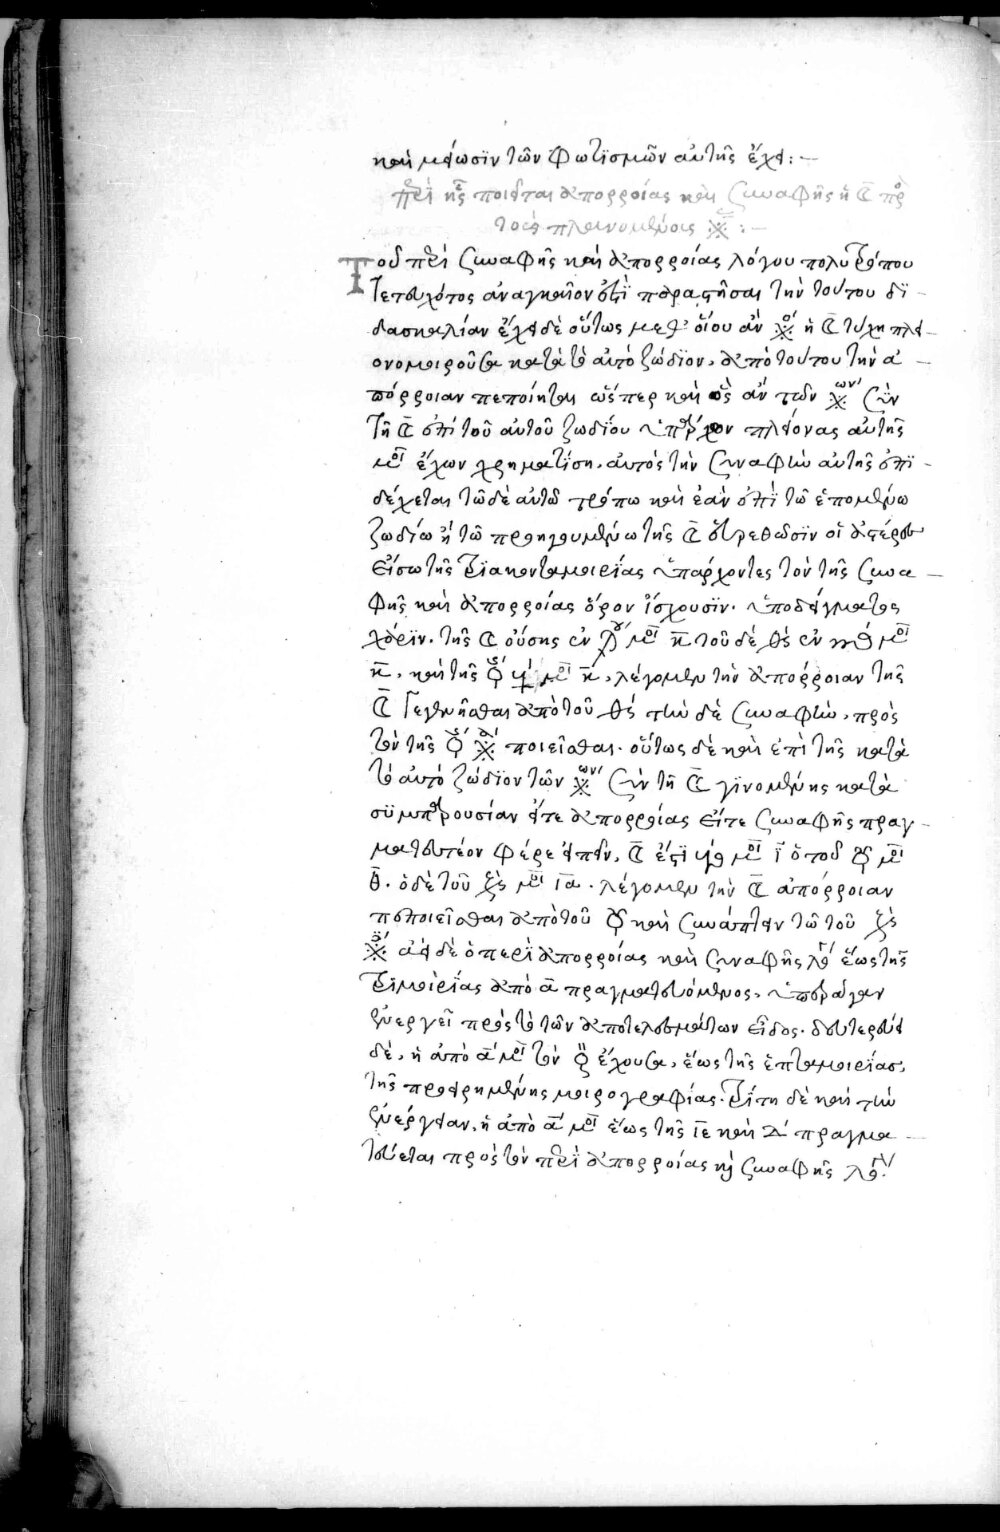 καὶ μείωσϊν τῶν φωτϊσμῶν αὐτῆς ἔχει: —
περὶ ἧς ποιεῖται ἀπορροίας καὶ συναφῆς ἡ ☾ πρὸ
τοὺς πλανομένους ※ : —
Τοῦ περὶ συναφῆς καὶ ἀπορροίας λόγου πολυτρόπου
τετυχότος ἀναγκαῖον ἐστϊ παραστῆσαι τὴν τούτου δϊ —
δασκαλίαν ἔχει δὲ οὕτως μεθ' οἵου ἂν ※ ἡ ☾ τύχη πλει —
ονομοιροῦσα κατὰ τὸ αὐτὸ ζώδϊον, ἀπὸ τούτου τὴν ἀ —
πόρροιαν πεποίηται ὥσπερ καὶ ὃς ἂν τῶν ※ων σὺν
τῆ ☾ ἐπὶ τοῦ αὐτοῦ ζωδΐου ὑπάρχον πλείονας αὐτῆς
μοῖ ἔχων χρηματίση, αὐτὸς τὴν συναφὴν αὐτῆς ἐπϊ —
δέχεται τῶ δὲ αὐτῶ τρόπω καὶ ἐὰν ἐπὶ τῶ ἑπομένω
ζωδίω ἢ τῶ προηγουμένω τῆς ☾ εὑρεθῶσϊν οἱ ἀστέρες
εἴσω τῆς τρϊακονταμοιρίας ὑπάρχοντες τὸν τῆς συνα —
φῆς καὶ ἀπορροίας ὅρον ἴσχουσϊν. ὑποδείγματος
χάρϊν. τῆς ☾ οὔσης ἐν μοῖ κ̄ τοῦ δὲ ἐν μοῖ
κ̄, καὶ τῆς ♀ μοῖ κ̄, λέγομεν τὴν ἀπόρροιαν τῆς
☾ γεγενῆσθαι ἀπὸ τοῦ τὴν δὲ συναφὴν, πρὸς
τὸν τῆς ♀ ※ ποιεῖσθαι. οὕτως δὲ καὶ ἐπὶ τῆς κατὰ
τὸ αὐτὸ ζώδϊον τῶν ※ων σὺν τῆ ☾ γϊνομένης κατὰ
συμπαρουσίαν εἴτε ἀπορροίας εἴτε συναφῆς πραγ —
ματευτέον φέρε εἰπεῖν, ☾ ἔστϊ μοῖ ῑ ὁ τοῦ ☿ μοῖ
θ̄. ὁ δὲ τοῦ μοῖ ῑᾱ. λέγομεν τὴν ☾ ἀπόρροιαν
πεποιεῖσθαι ἀπὸ τοῦ ☿ καὶ συνάπτειν τῶ τοῦ
※ ἀεὶ δὲ ὁ περὶ ἀπορροίας καὶ συναφῆς λόγ ἕως τῆς
τρϊμοιρίας ἀπὸ ᾱ πραγματευόμενος,
ἐνεργεῖ πρὸς τὸ τῶν ἀποτελεσμάτων εἶδος. δευτερεύει
δὲ, ἡ ἀπὸ ᾱ μοῖ τὸν ἔχουσα, ἕως τῆς ἑπταμοιρίας,
τῆς προειρημένης μοιρογραφίας. τρίτη δὲ καὶ τὴν
ἐνέργειαν, ἡ ἀπὸ ᾱ μοῖ ἕως τῆς ῑε̄ καὶ πραγμα —
τεύεται πρὸς τὸν περὶ ἀπορροίας κὴ συναφῆς λόγ